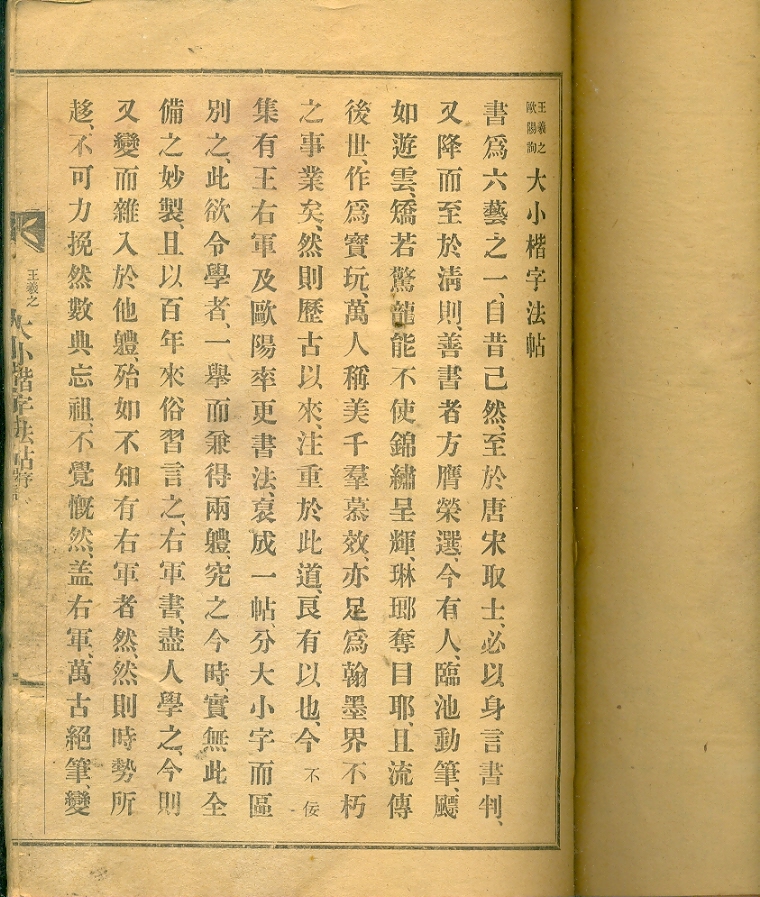 王羲之
歐陽詢
大小楷字法帖
書爲六藝之一、自昔已然、至於唐宋取士、必以身言書判、
又降而至於淸則、善書者方膺榮選、今有人、臨池動筆、飃
如遊雲、矯若驚龍、能不使錦繡呈輝、琳瑯奪目耶、且流傳
後世、作爲寳玩、萬人稱美、千羣慕效、亦足爲翰墨界不朽
之事業矣、然則歷古以來、注重於此道、良有以也、今不佞
集有王右軍及歐陽率更書法、裒成一帖、分大小字而區
別之、此欲令學者、一舉而兼得兩軆、究之今時、實無此全
備之妙製、且以百年來俗習言之、右軍書、盡人學之、今則
又變而雜入於他軆、殆如不知有右軍者然、然則時勢所
趍、不可力挽、然數典忘祖、不覺慨然、盖右軍、萬古絕筆、變
王羲之
大小楷字法帖